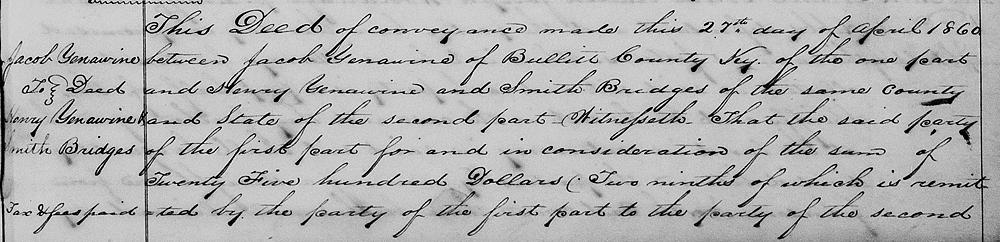 This Deed of conveyance made this 27th day of April 1860
Jacob Yenawine between Jacob Yenawine of Bullitt County Ky. of the one part
To } Deed and Henry Yenawine and Smith Bridges of the same County
Henry Yenawine & and State of the second part Witnesseth That the said party
Smith Bridges of the first part for and in consideration of the sum of
Twenty Five hundred Dollars ( Two ninths of which is remit
Tax & fees paid =ted by the party of the first part to the party of the second